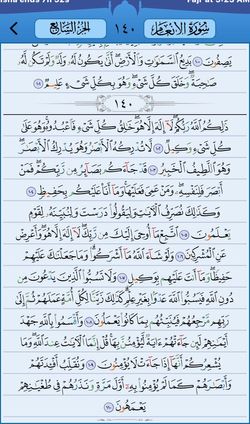 سُورَةُ الأَنْعَامِ ١٤٠ الجُزْءُ السَّابِعُ
يَصِفُونَ ١٠٠ بَدِيعُ ٱلسَّمَٰوَٰتِ وَٱلْأَرْضِ أَنَّىٰ يَكُونُ لَهُۥ وَلَدٌ وَلَمْ تَكُن لَّهُۥ
صَٰحِبَةٌ وَخَلَقَ كُلَّ شَىْءٍ وَهُوَ بِكُلِّ شَىْءٍ عَلِيمٌ ١٠١
١٤٠
ذَٰلِكُمُ ٱللَّهُ رَبُّكُمْ لَآ إِلَٰهَ إِلَّا هُوَ خَٰلِقُ كُلِّ شَىْءٍ فَٱعْبُدُوهُ وَهُوَ عَلَىٰ
كُلِّ شَىْءٍ وَكِيلٌ ١٠٢ لَّا تُدْرِكُهُ ٱلْأَبْصَٰرُ وَهُوَ يُدْرِكُ ٱلْأَبْصَٰرَ
وَهُوَ ٱللَّطِيفُ ٱلْخَبِيرُ ١٠٣ قَدْ جَآءَكُم بَصَآئِرُ مِن رَّبِّكُمْ فَمَنْ
أَبْصَرَ فَلِنَفْسِهِۦ وَمَنْ عَمِىَ فَعَلَيْهَا وَمَآ أَنَا۠ عَلَيْكُم بِحَفِيظٍ ١٠٤
وَكَذَٰلِكَ نُصَرِّفُ ٱلْءَايَٰتِ وَلِيَقُولُوا۟ دَرَسْتَ وَلِنُبَيِّنَهُۥ لِقَوْمٍ
يَعْلَمُونَ ١٠٥ ٱتَّبِعْ مَآ أُوحِىَ إِلَيْكَ مِن رَّبِّكَ لَآ إِلَٰهَ إِلَّا هُوَ وَأَعْرِضْ
عَنِ ٱلْمُشْرِكِينَ ١٠٦ وَلَوْ شَآءَ ٱللَّهُ مَآ أَشْرَكُوا۟ وَمَا جَعَلْنَٰكَ عَلَيْهِمْ
حَفِيظًا وَمَآ أَنتَ عَلَيْهِم بِوَكِيلٍ ١٠٧ وَلَا تَسُبُّوا۟ ٱلَّذِينَ يَدْعُونَ مِن
دُونِ ٱللَّهِ فَيَسُبُّوا۟ ٱللَّهَ عَدْوًۢا بِغَيْرِ عِلْمٍ كَذَٰلِكَ زَيَّنَّا لِكُلِّ أُمَّةٍ عَمَلَهُمْ ثُمَّ إِلَىٰ
رَبِّهِم مَّرْجِعُهُمْ فَيُنَبِّئُهُم بِمَا كَانُوا۟ يَعْمَلُونَ ١٠٨ وَأَقْسَمُوا۟ بِٱللَّهِ جَهْدَ
أَيْمَٰنِهِمْ لَئِن جَآءَتْهُمْ ءَايَةٌ لَّيُؤْمِنُنَّ بِهَا قُلْ إِنَّمَا ٱلْءَايَٰتُ عِندَ ٱللَّهِ وَمَا
يُشْعِرُكُمْ أَنَّهَآ إِذَا جَآءَتْ لَا يُؤْمِنُونَ ١٠٩ وَنُقَلِّبُ أَفْـِٔدَتَهُمْ
وَأَبْصَٰرَهُمْ كَمَا لَمْ يُؤْمِنُوا۟ بِهِۦٓ أَوَّلَ مَرَّةٍ وَنَذَرُهُمْ فِى طُغْيَٰنِهِمْ
يَعْمَهُونَ ١١٠